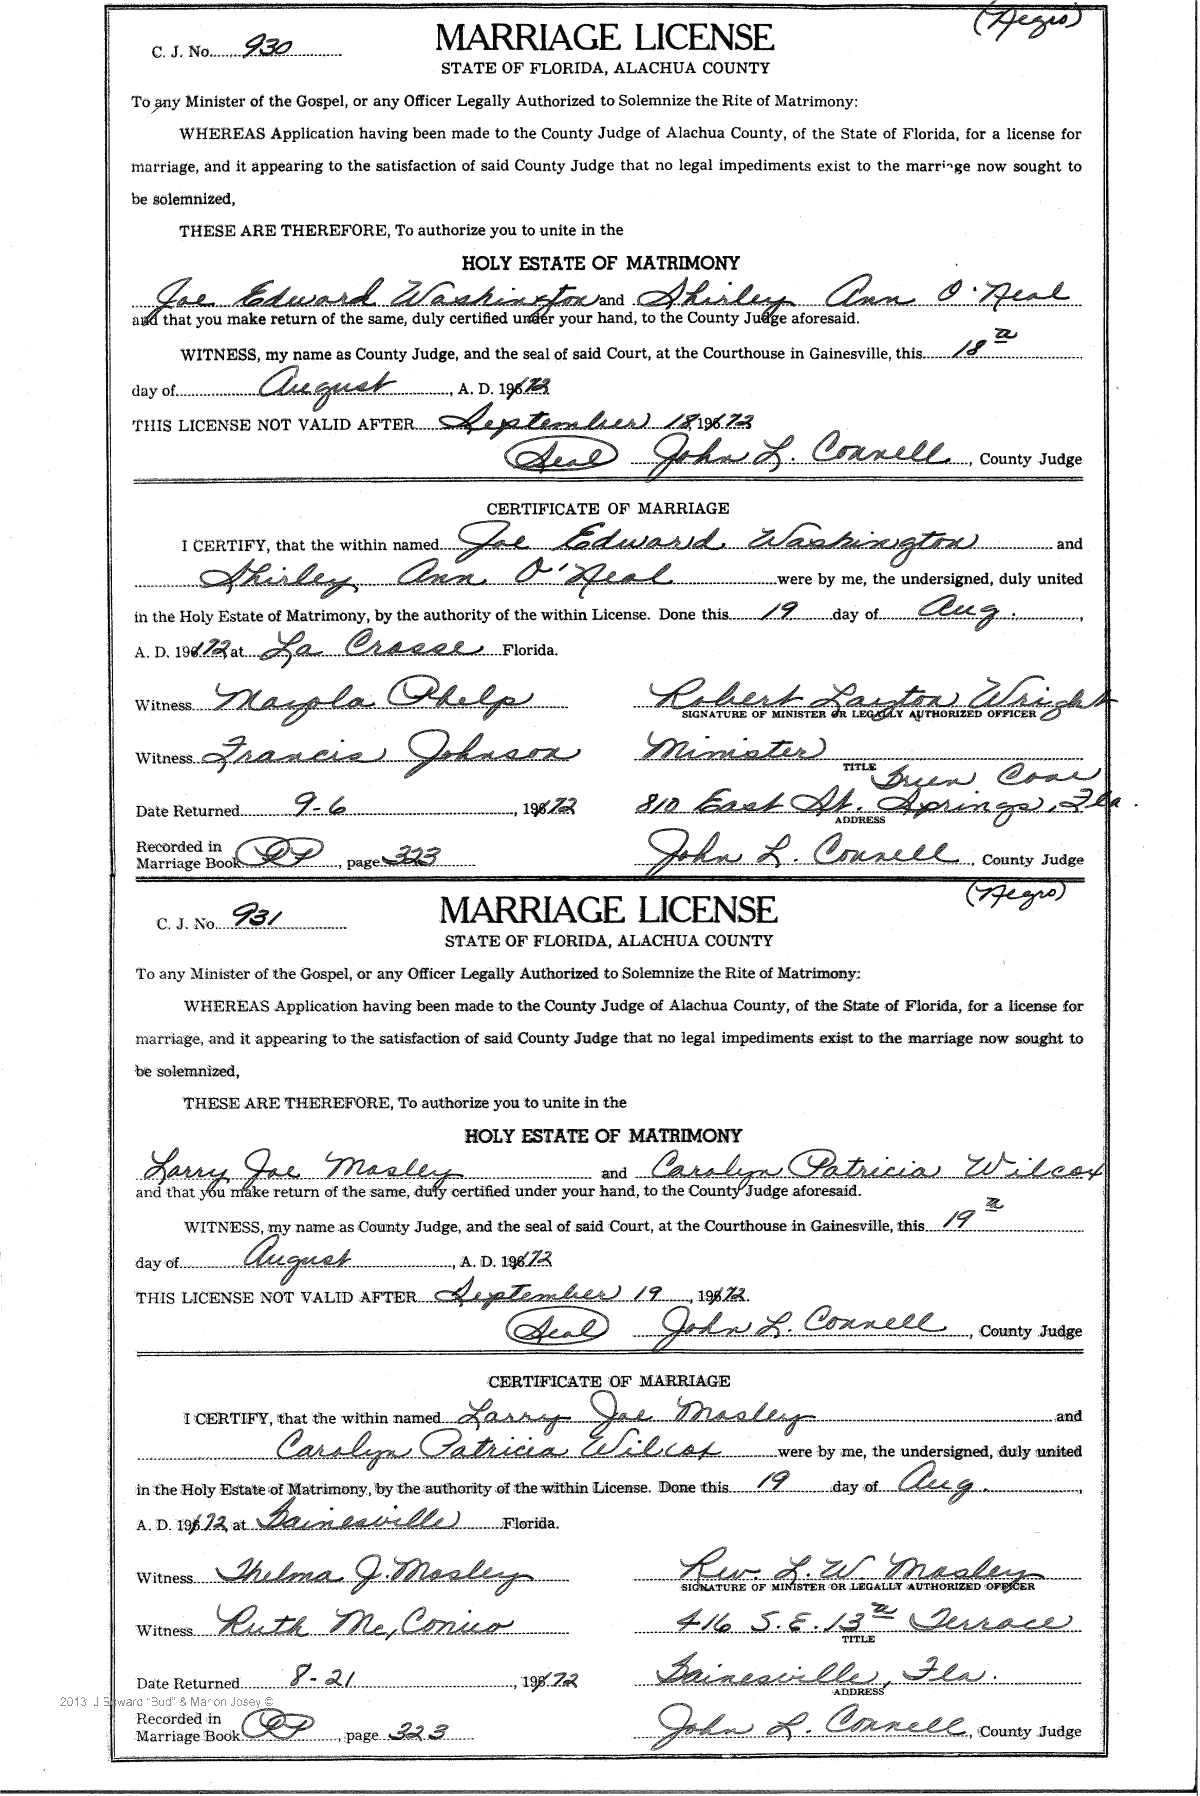 (Negro)
C. J. No. 930
MARRIAGE LICENSE
STATE OF FLORIDA, ALACHUA COUNTY
To any Minister of the Gospel, or any Officer Legally Authorized to Solemnize the Rite of Matrimony:
WHEREAS Application having been made to the County Judge of Alachua County, of the State of Florida, for a license for
marriage, and it appearing to the satisfaction of said County Judge that no legal impediments exist to the marriage now sought to
be solemnized,
THESE ARE THEREFORE, To authorize you to unite in the
HOLY ESTATE OF MATRIMONY
Joe Edward Washington and Shirley Ann O'Neal
and that you make return of the same, duly certified under your hand, to the County Judge aforesaid.
WITNESS, my name as County Judge, and the seal of said Court, at the Courthouse in Gainesville, this 18
day of August, A. D. 1972
THIS LICENSE NOT VALID AFTER September 18, 1972
(Seal) John L. Connell, County Judge
CERTIFICATE OF MARRIAGE
I CERTIFY, that the within named Joe Edward Washington and
Shirley Ann O'Neal were by me, the undersigned, duly united
in the Holy Estate of Matrimony, by the authority of the within License. Done this 19 day of Aug.,
A. D. 1972 at La Crosse Florida.
Witness Mayola Phelp Robert Layton Wright
SIGNATURE OF MINISTER OR LEGALLY AUTHORIZED OFFICER
Witness Francis Johnson Minister
TITLE
Date Returned 9-6, 1972 810 East St. Green Cove Springs, Fla.
ADDRESS
Recorded in
Marriage Book, page 323 John L. Connell, County Judge
(Negro)
C. J. No. 931
MARRIAGE LICENSE
STATE OF FLORIDA, ALACHUA COUNTY
To any Minister of the Gospel, or any Officer Legally Authorized to Solemnize the Rite of Matrimony:
WHEREAS Application having been made to the County Judge of Alachua County, of the State of Florida, for a license for
marriage, and it appearing to the satisfaction of said County Judge that no legal impediments exist to the marriage now sought to
be solemnized,
THESE ARE THEREFORE, To authorize you to unite in the
HOLY ESTATE OF MATRIMONY
Larry Joe Mosley and Carolyn Patricia Wilcox
and that you make return of the same, duly certified under your hand, to the County Judge aforesaid.
WITNESS, my name as County Judge, and the seal of said Court, at the Courthouse in Gainesville, this 19
day of August, A. D. 1972
THIS LICENSE NOT VALID AFTER September 19, 1972.
(Seal) John L. Connell, County Judge
CERTIFICATE OF MARRIAGE
I CERTIFY, that the within named Larry Joe Mosley and
Carolyn Patricia Wilcox were by me, the undersigned, duly united
in the Holy Estate of Matrimony, by the authority of the within License. Done this 19 day of Aug.,
A. D. 1972 at Gainesville Florida.
Witness Thelma J. Mosley Rev. L. W. Mosley
SIGNATURE OF MINISTER OR LEGALLY AUTHORIZED OFFICER
Witness Ruth 416 S.E. 13 Terrace
TITLE
Date Returned 8-21, 1972 Gainesville, Fla.
ADDRESS
2013 J Edward "Bud" & Marion Josey ©
Recorded in
Marriage Book, page 323 John L. Connell, County Judge